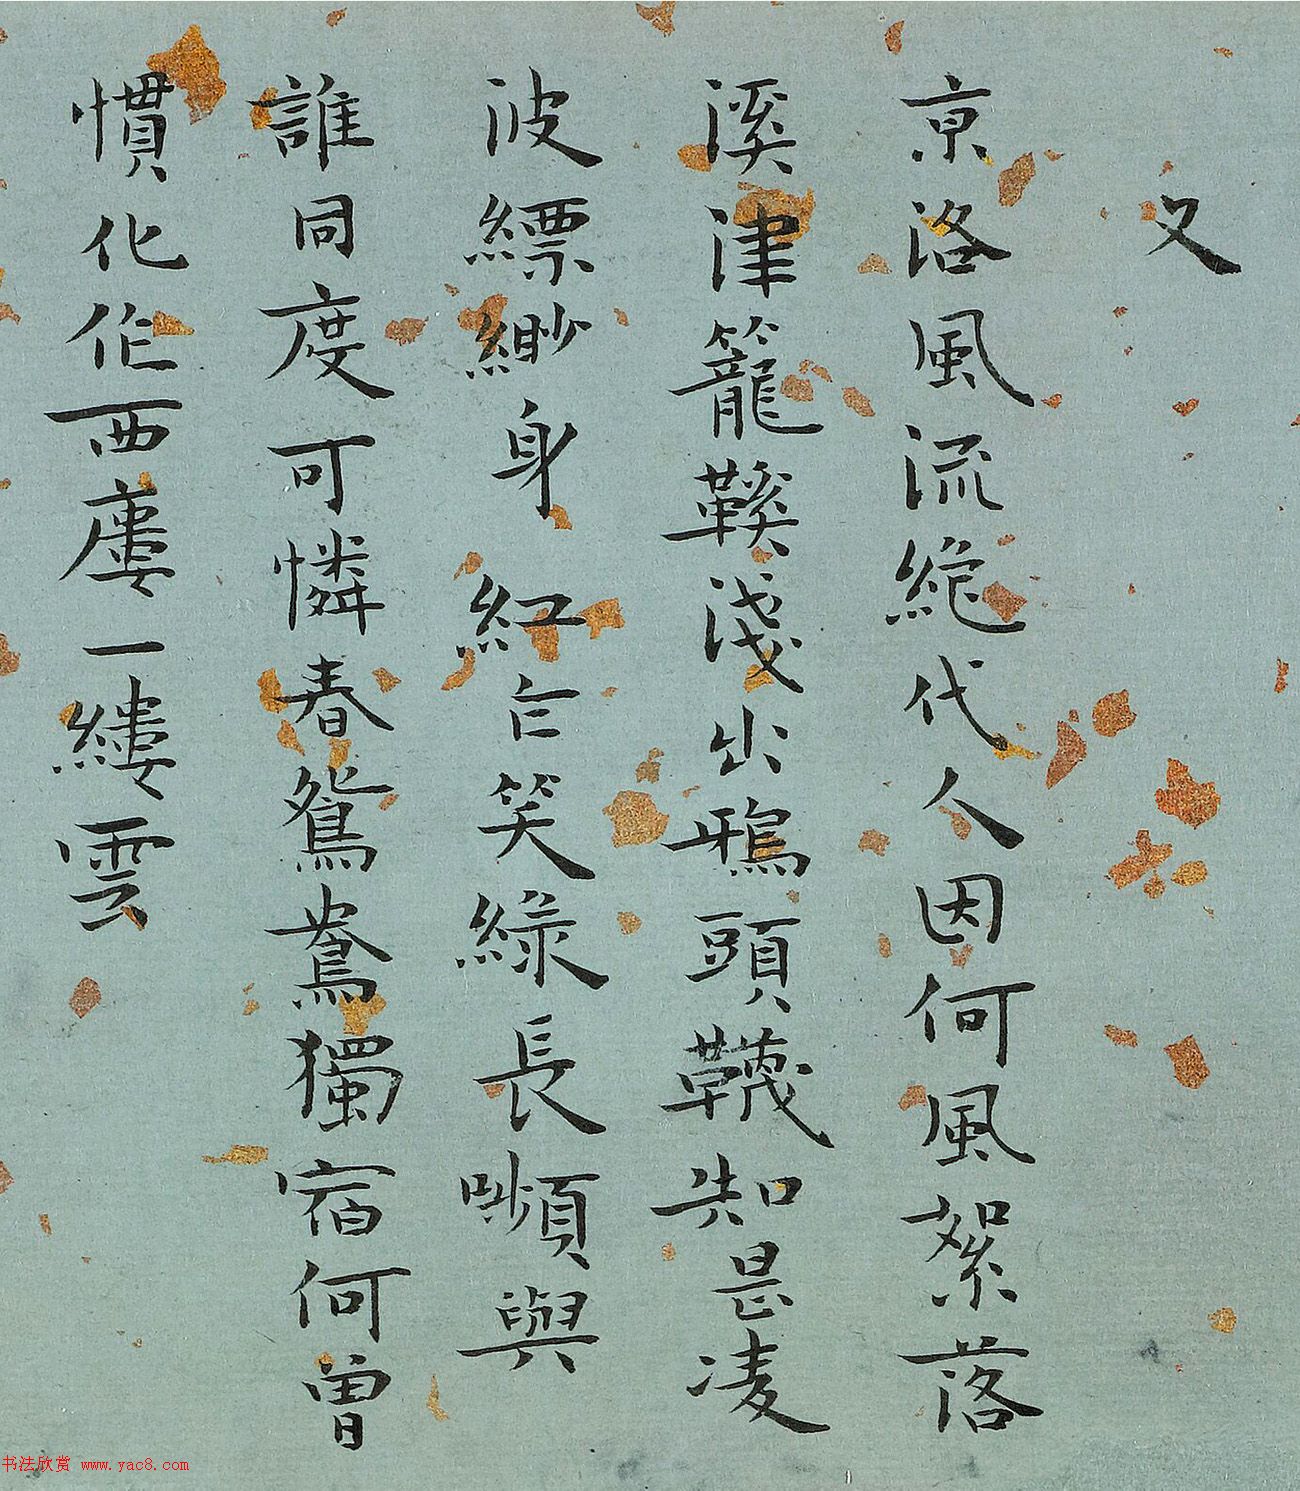 又
京洛風流絕代人因何風絮落
溪津籠鞵淺出鴉頭韈知是凌
波縹緲身 紅乍笑綠長嚬與
誰同度可憐春鴛鴦獨宿何曾
慣化作西廔一縷雲
书法欣赏 www.yac8.com